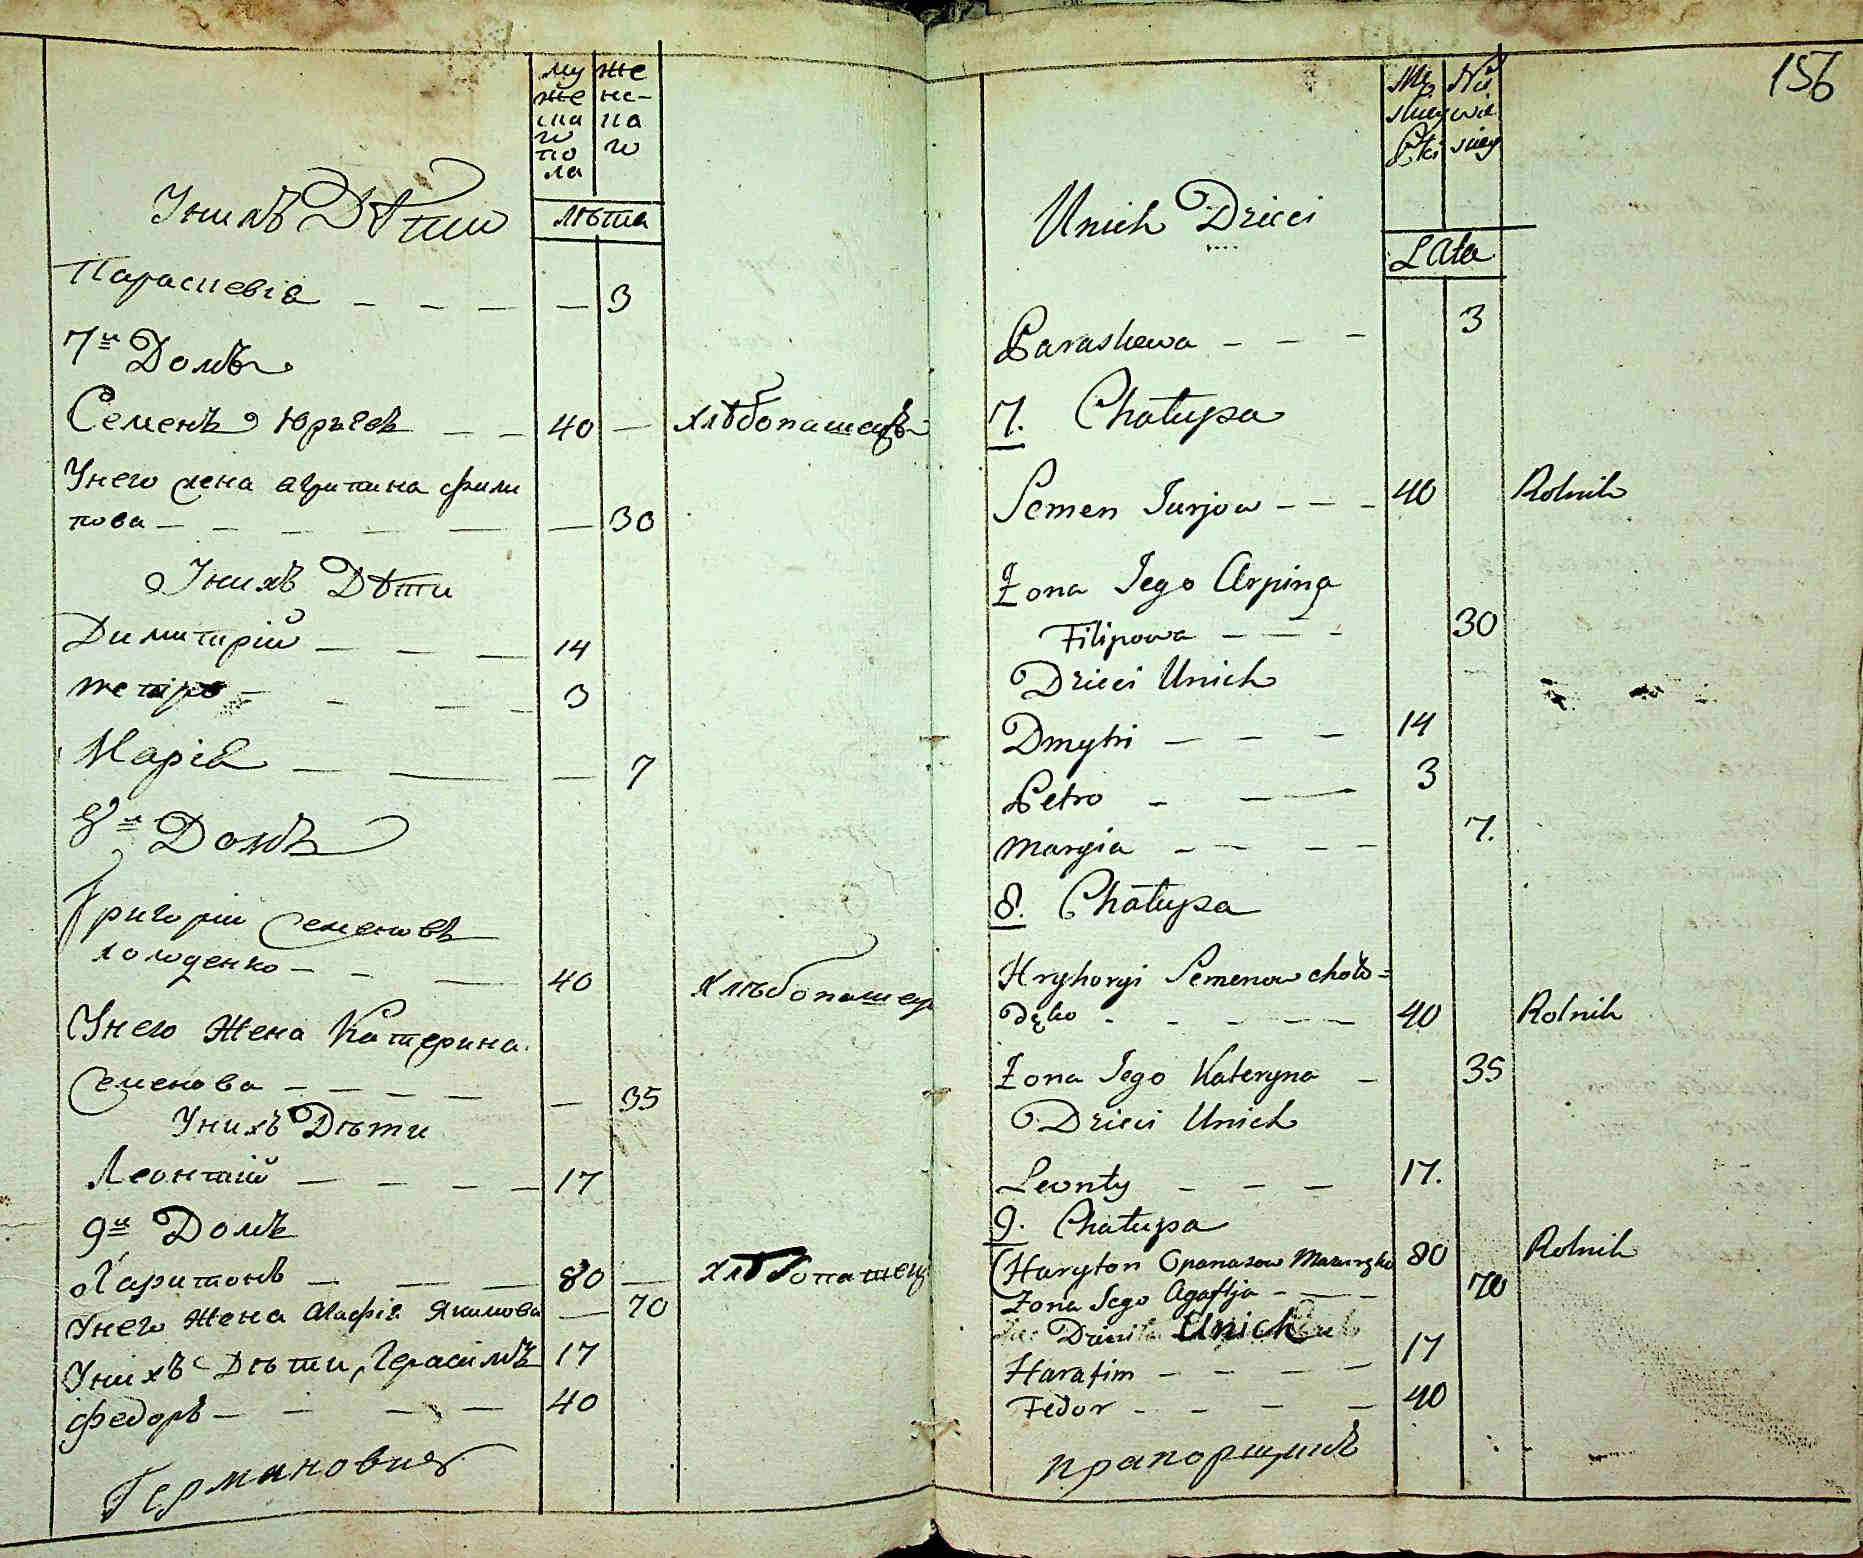 му же
же не-
ска на
го го
по
ла
лѣта
Унихъ Дѣти
Параскевія — — — — — 3
7й Домъ
Семенъ Юрьевъ — — 40 — хлѣбопашецъ
Унего жена агрипина фили
пова — — — — — — 30
Унихъ Дѣти
Димитрій — — — 14
петро — — — — 3
Марія — — — 7
8й Домъ
Григорій Семеновъ
холоденко — — — 40 хлѣбопашец
Унего Жена Катерина
Семенова — — — — — — 35
Унихъ Дѣти
Леонтій — — — — — 17
9й Домъ
Харитонъ — — — 80 — хлѣбопашец
Унего Жена Агафія Якимова — 70
Унихъ Дѣти, Герасимъ 17
федоръ — — — — 40
Германович
156
Mę Nie
skiey wie
Płci skiey
Lata
Unich Dzieci
Paraskewa — — — 3
7. Chałupa
Semen Jurjow — — — 40 Rolnik
Żona Jego Arpina
Filipowa — — — 30
Dzieci Unich
Dmytri — — — 14
Petro — — 3
Maryia — — — — 7.
8. Chałupa
Hryhoryi Semenow choło=
dęko — — — — — 40 Rolnik
Żona Jego Kateryna — 35
Dzieci Unich
Leonty — — — 17.
9. Chałupa
Haryton Opanasow 80 Rolnik
Żona Jego Agafija — — — 70
Dzieci Unich
Harasim — — — — 17
Fedor — — — — 40
прапорщикъ